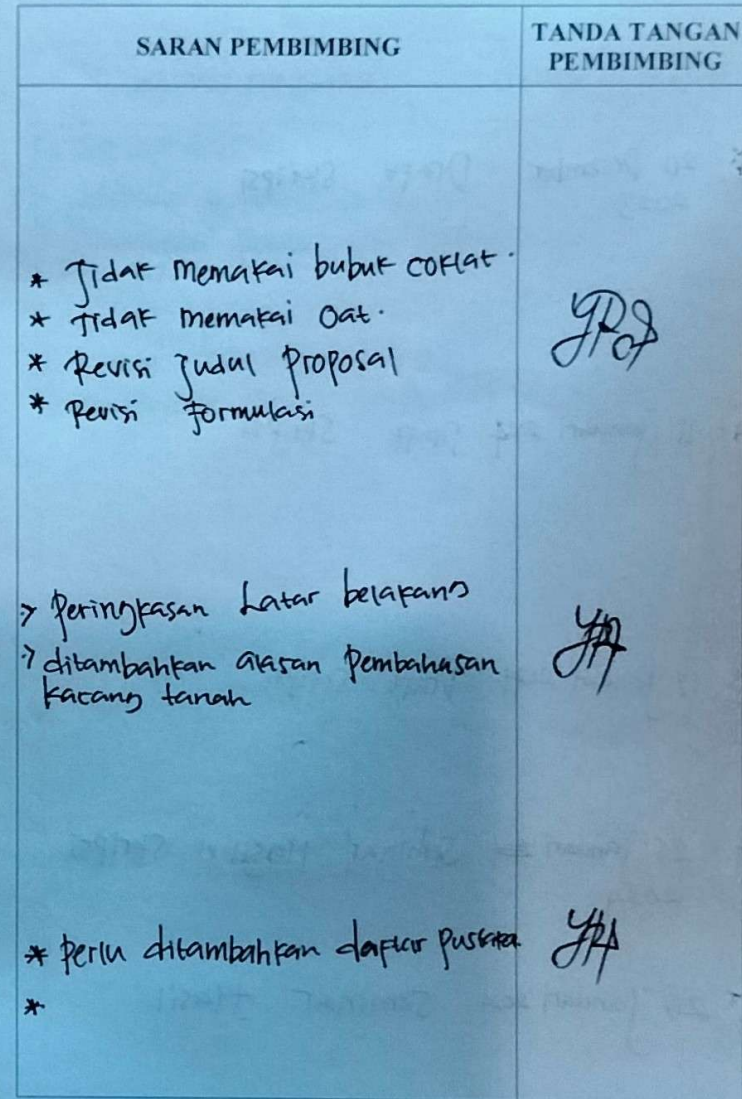 SARAN PEMBIMBING
TANDA TANGAN
PEMBIMBING
* Tidak memakai bubuk coklat.
* Tidak memakai Oat.
* Revisi Judul Proposal
* Revisi formulasi
> Peringkasan Latar belakang
> ditambahkan alasan Pembahasan
kacang tanah
* Perlu ditambahkan daftar pustaka
*